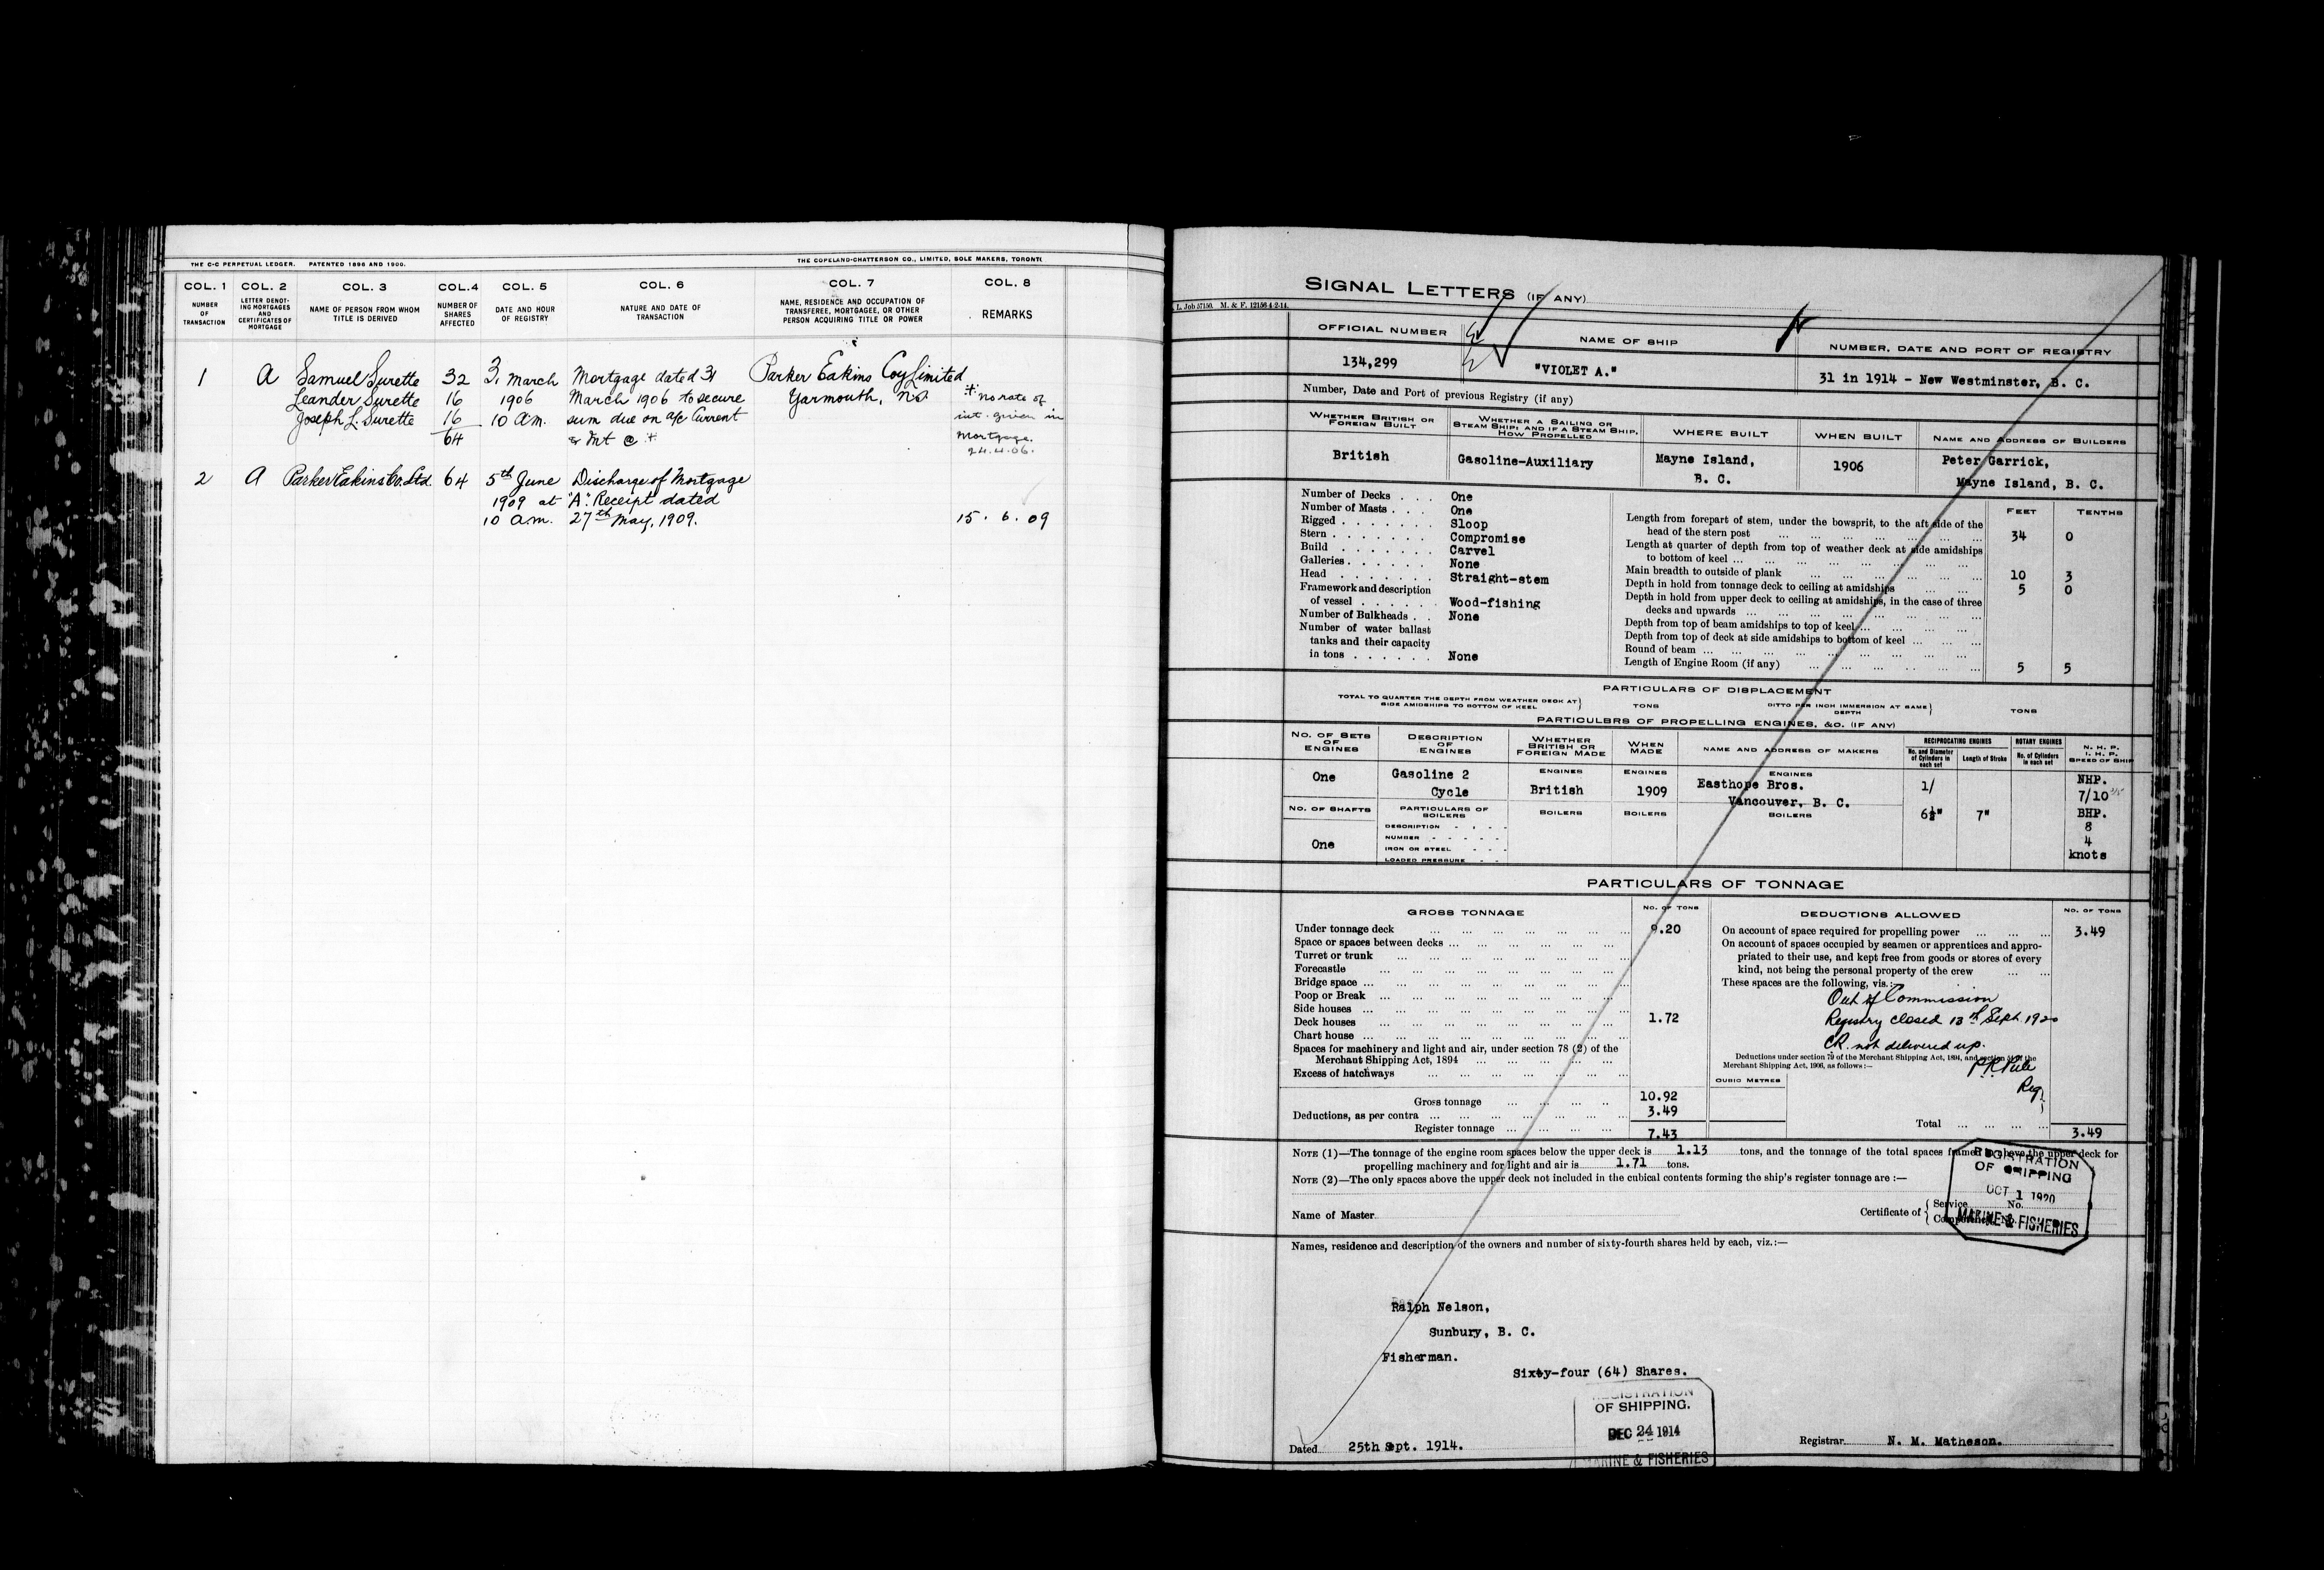 THE C-C PERPETUAL LEDGER. PATENTED 1896 AND 1900. THE COPELAND-CHATTERSON CO., LIMITED, SOLE MAKERS, TORONTO
COL. 1 COL. 2 COL. 3 COL. 4 COL. 5 COL. 6 COL. 7 COL. 8
NUMBER OF TRANSACTION
LETTER DENOTING MORTGAGES AND CERTIFICATES OF MORTGAGE
NAME OF PERSON FROM WHOM TITLE IS DERIVED
NUMBER OF SHARES AFFECTED
DATE AND HOUR OF REGISTRY
NATURE AND DATE OF TRANSACTION
NAME, RESIDENCE AND OCCUPATION OF TRANSFEREE, MORTGAGEE, OR OTHER PERSON ACQUIRING TITLE OR POWER
REMARKS
1 A Samuel Surette 32 31 March Mortgage dated 31 Parker Eakins Coy Limited
Leander Surette 16 1906 March 1906 to secure Yarmouth, NS * no rate of
Joseph L. Surette 16 10 a.m. sum due on a/c Current int. given in
64 & Int @ * Mortgage.
24.4.06.
2 A Parker Eakins Co. Ltd. 64 5th June Discharge of Mortgage
1909 at "A". Receipt dated
10 a.m. 27th May, 1909. 15. 6. 09
SIGNAL LETTERS (IF ANY)
L. Job 57150. M. & F. 12156 4-2-14.
OFFICIAL NUMBER NAME OF SHIP NUMBER, DATE AND PORT OF REGISTRY
134,299 "VIOLET A." 31 in 1914 - New Westminster, B. C.
Number, Date and Port of previous Registry (if any)
WHETHER BRITISH OR FOREIGN BUILT
WHETHER A SAILING OR STEAM SHIP; AND IF A STEAM SHIP, HOW PROPELLED
WHERE BUILT WHEN BUILT NAME AND ADDRESS OF BUILDERS
British Gasoline-Auxiliary Mayne Island, 1906 Peter Garrick,
B. C. Mayne Island, B. C.
Number of Decks . . . One
Number of Masts . . . One
Rigged . . . . . . . Sloop
Stern . . . . . . . Compromise
Build . . . . . . . Carvel
Galleries . . . . . . None
Head . . . . . . . Straight-stem
Framework and description
of vessel . . . . . . Wood-fishing
Number of Bulkheads . . None
Number of water ballast
tanks and their capacity
in tons . . . . . . None
FEET TENTHS
Length from forepart of stem, under the bowsprit, to the aft side of the
head of the stern post 34 0
Length at quarter of depth from top of weather deck at side amidships
to bottom of keel
Main breadth to outside of plank 10 3
Depth in hold from tonnage deck to ceiling at amidships 5 0
Depth in hold from upper deck to ceiling at amidships, in the case of three
decks and upwards
Depth from top of beam amidships to top of keel
Depth from top of deck at side amidships to bottom of keel
Round of beam
Length of Engine Room (if any) 5 5
PARTICULARS OF DISPLACEMENT
TOTAL TO QUARTER THE DEPTH FROM WEATHER DECK AT SIDE AMIDSHIPS TO BOTTOM OF KEEL } TONS
DITTO PER INCH IMMERSION AT SAME DEPTH } TONS
PARTICULBRS OF PROPELLING ENGINES, &O. (IF ANY)
NO. OF SETS OF ENGINES
DESCRIPTION OF ENGINES
WHETHER BRITISH OR FOREIGN MADE
WHEN MADE
NAME AND ADDRESS OF MAKERS
RECIPROCATING ENGINES
No. and Diameter of Cylinders in each set
Length of Stroke
ROTARY ENGINES
No. of Cylinders in each set
N. H. P.
I. H. P.
SPEED OF SHIP
ENGINES ENGINES ENGINES
One Gasoline 2 Cycle British 1909 Easthope Bros. 1/ NHP.
Vancouver, B. C. 7/10
6½" 7" BHP.
8
4
knots
NO. OF SHAFTS
One
PARTICULARS OF BOILERS
BOILERS BOILERS BOILERS
DESCRIPTION
NUMBER
IRON OR STEEL
LOADED PRESSURE
PARTICULARS OF TONNAGE
GROSS TONNAGE NO. OF TONS
Under tonnage deck 9.20
Space or spaces between decks
Turret or trunk
Forecastle
Bridge space
Poop or Break
Side houses
Deck houses 1.72
Chart house
Spaces for machinery and light and air, under section 78 (2) of the
Merchant Shipping Act, 1894
Excess of hatchways
Gross tonnage 10.92
Deductions, as per contra 3.49
Register tonnage 7.43
DEDUCTIONS ALLOWED NO. OF TONS
On account of space required for propelling power 3.49
On account of spaces occupied by seamen or apprentices and appro-
priated to their use, and kept free from goods or stores of every
kind, not being the personal property of the crew
These spaces are the following, vis.:—
Out of Commission
Registry closed 13th Sept. 1920
CR. not delivered up.
Deductions under section 79 of the Merchant Shipping Act, 1894, and section 54 of the
Merchant Shipping Act, 1906, as follows:—
Reg.
CUBIC METRES
Total 3.49
NOTE (1)—The tonnage of the engine room spaces below the upper deck is 1.13 tons, and the tonnage of the total spaces framed in above the upper deck for
propelling machinery and for light and air is 1.71 tons.
NOTE (2)—The only spaces above the upper deck not included in the cubical contents forming the ship's register tonnage are :—
REGISTRATION
OF SHIPPING
OCT 1 1920
MARINE & FISHERIES
Name of Master
Certificate of { Service No.
Competency No.
Names, residence and description of the owners and number of sixty-fourth shares held by each, viz.:—
Ralph Nelson,
Sunbury, B. C.
Fisherman.
Sixty-four (64) Shares.
REGISTRATION
OF SHIPPING.
DEC 24 1914
MARINE & FISHERIES
Dated 25th Spt. 1914.
Registrar N. M. Matheson.